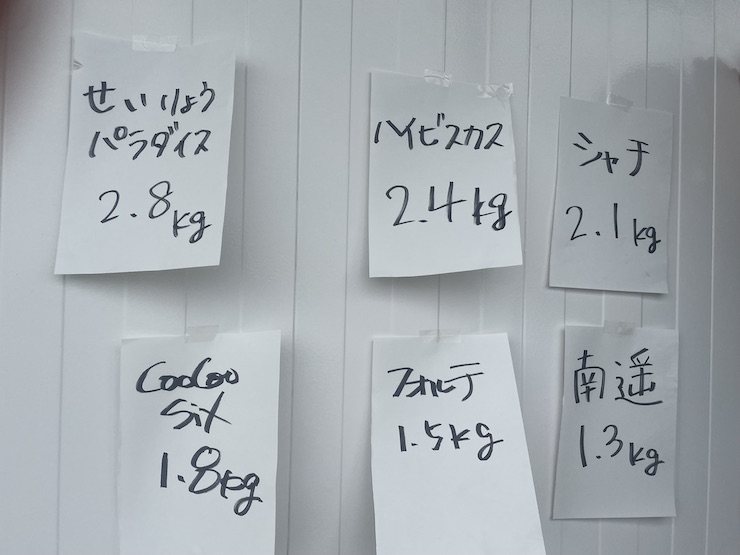 せいりょう
パラダイス
2.8kg
ハイビスカス
2.4kg
シャチ
2.1kg
CooCoo
Six
1.8kg
フォルテ
1.5kg
南遥
1.3kg